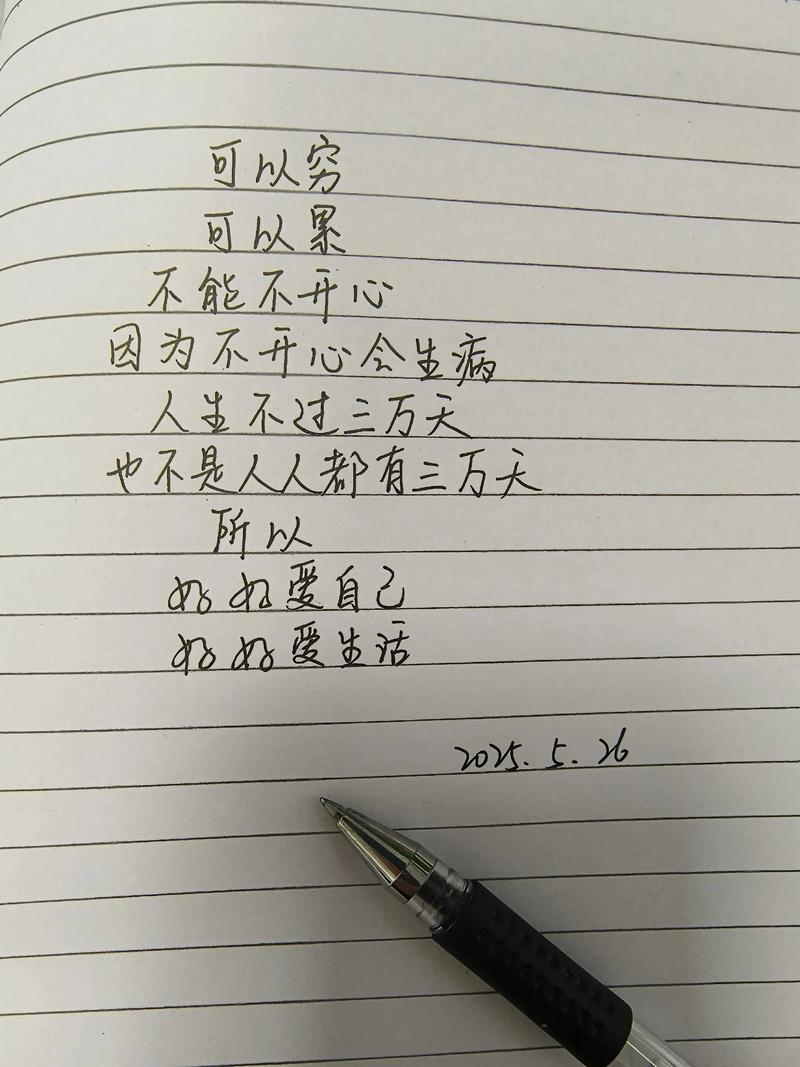 可以穷
可以累
不能不开心
因为不开心会生病
人生不过三万天
也不是人人都有三万天
所以
好好爱自己
好好爱生活
2025.5.26